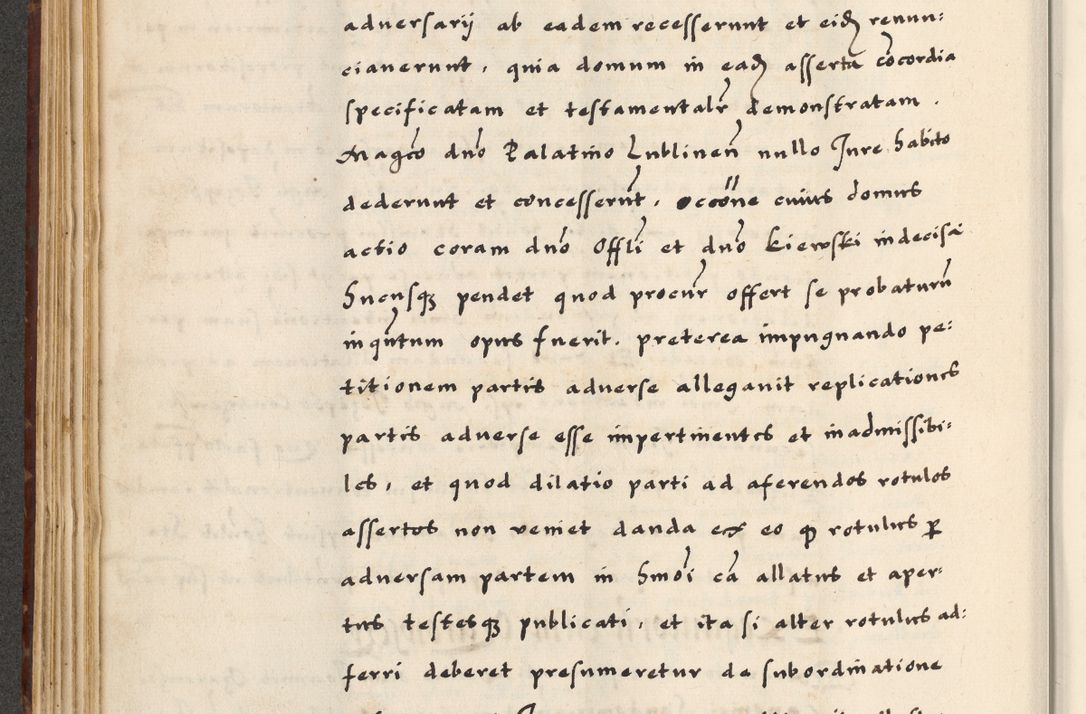 adversarij ab eadem recesserunt et eid renun:
cianerunt, quia domum in ead asserta cõcordia
specificatam et testamentalr demonstratam.
Magco dno Palatino Lublinen nullo Jure habito
dederunt et concessernt, occõne cuius domus
actio coram dno Offli et dno Kiewski indecisa
hucusqꝫ pendet quod procur offert se probaturu
inqntum opus fuerit. preterea impugnando pe:
titionem partis adverse alleganit replicationes
partis adverse esse impertinentes et inadmissibi:
les, et quod dilatio parti ad aferendos rotulos
assertos non veniet danda ex eo qꝫ rotulus ꝑ
adversam partem in hmoi ca allatus et aper:
tus testesqꝫ publicati, et ita si alter rotulus ad:
ferri deberet presumeretur de subordinatione